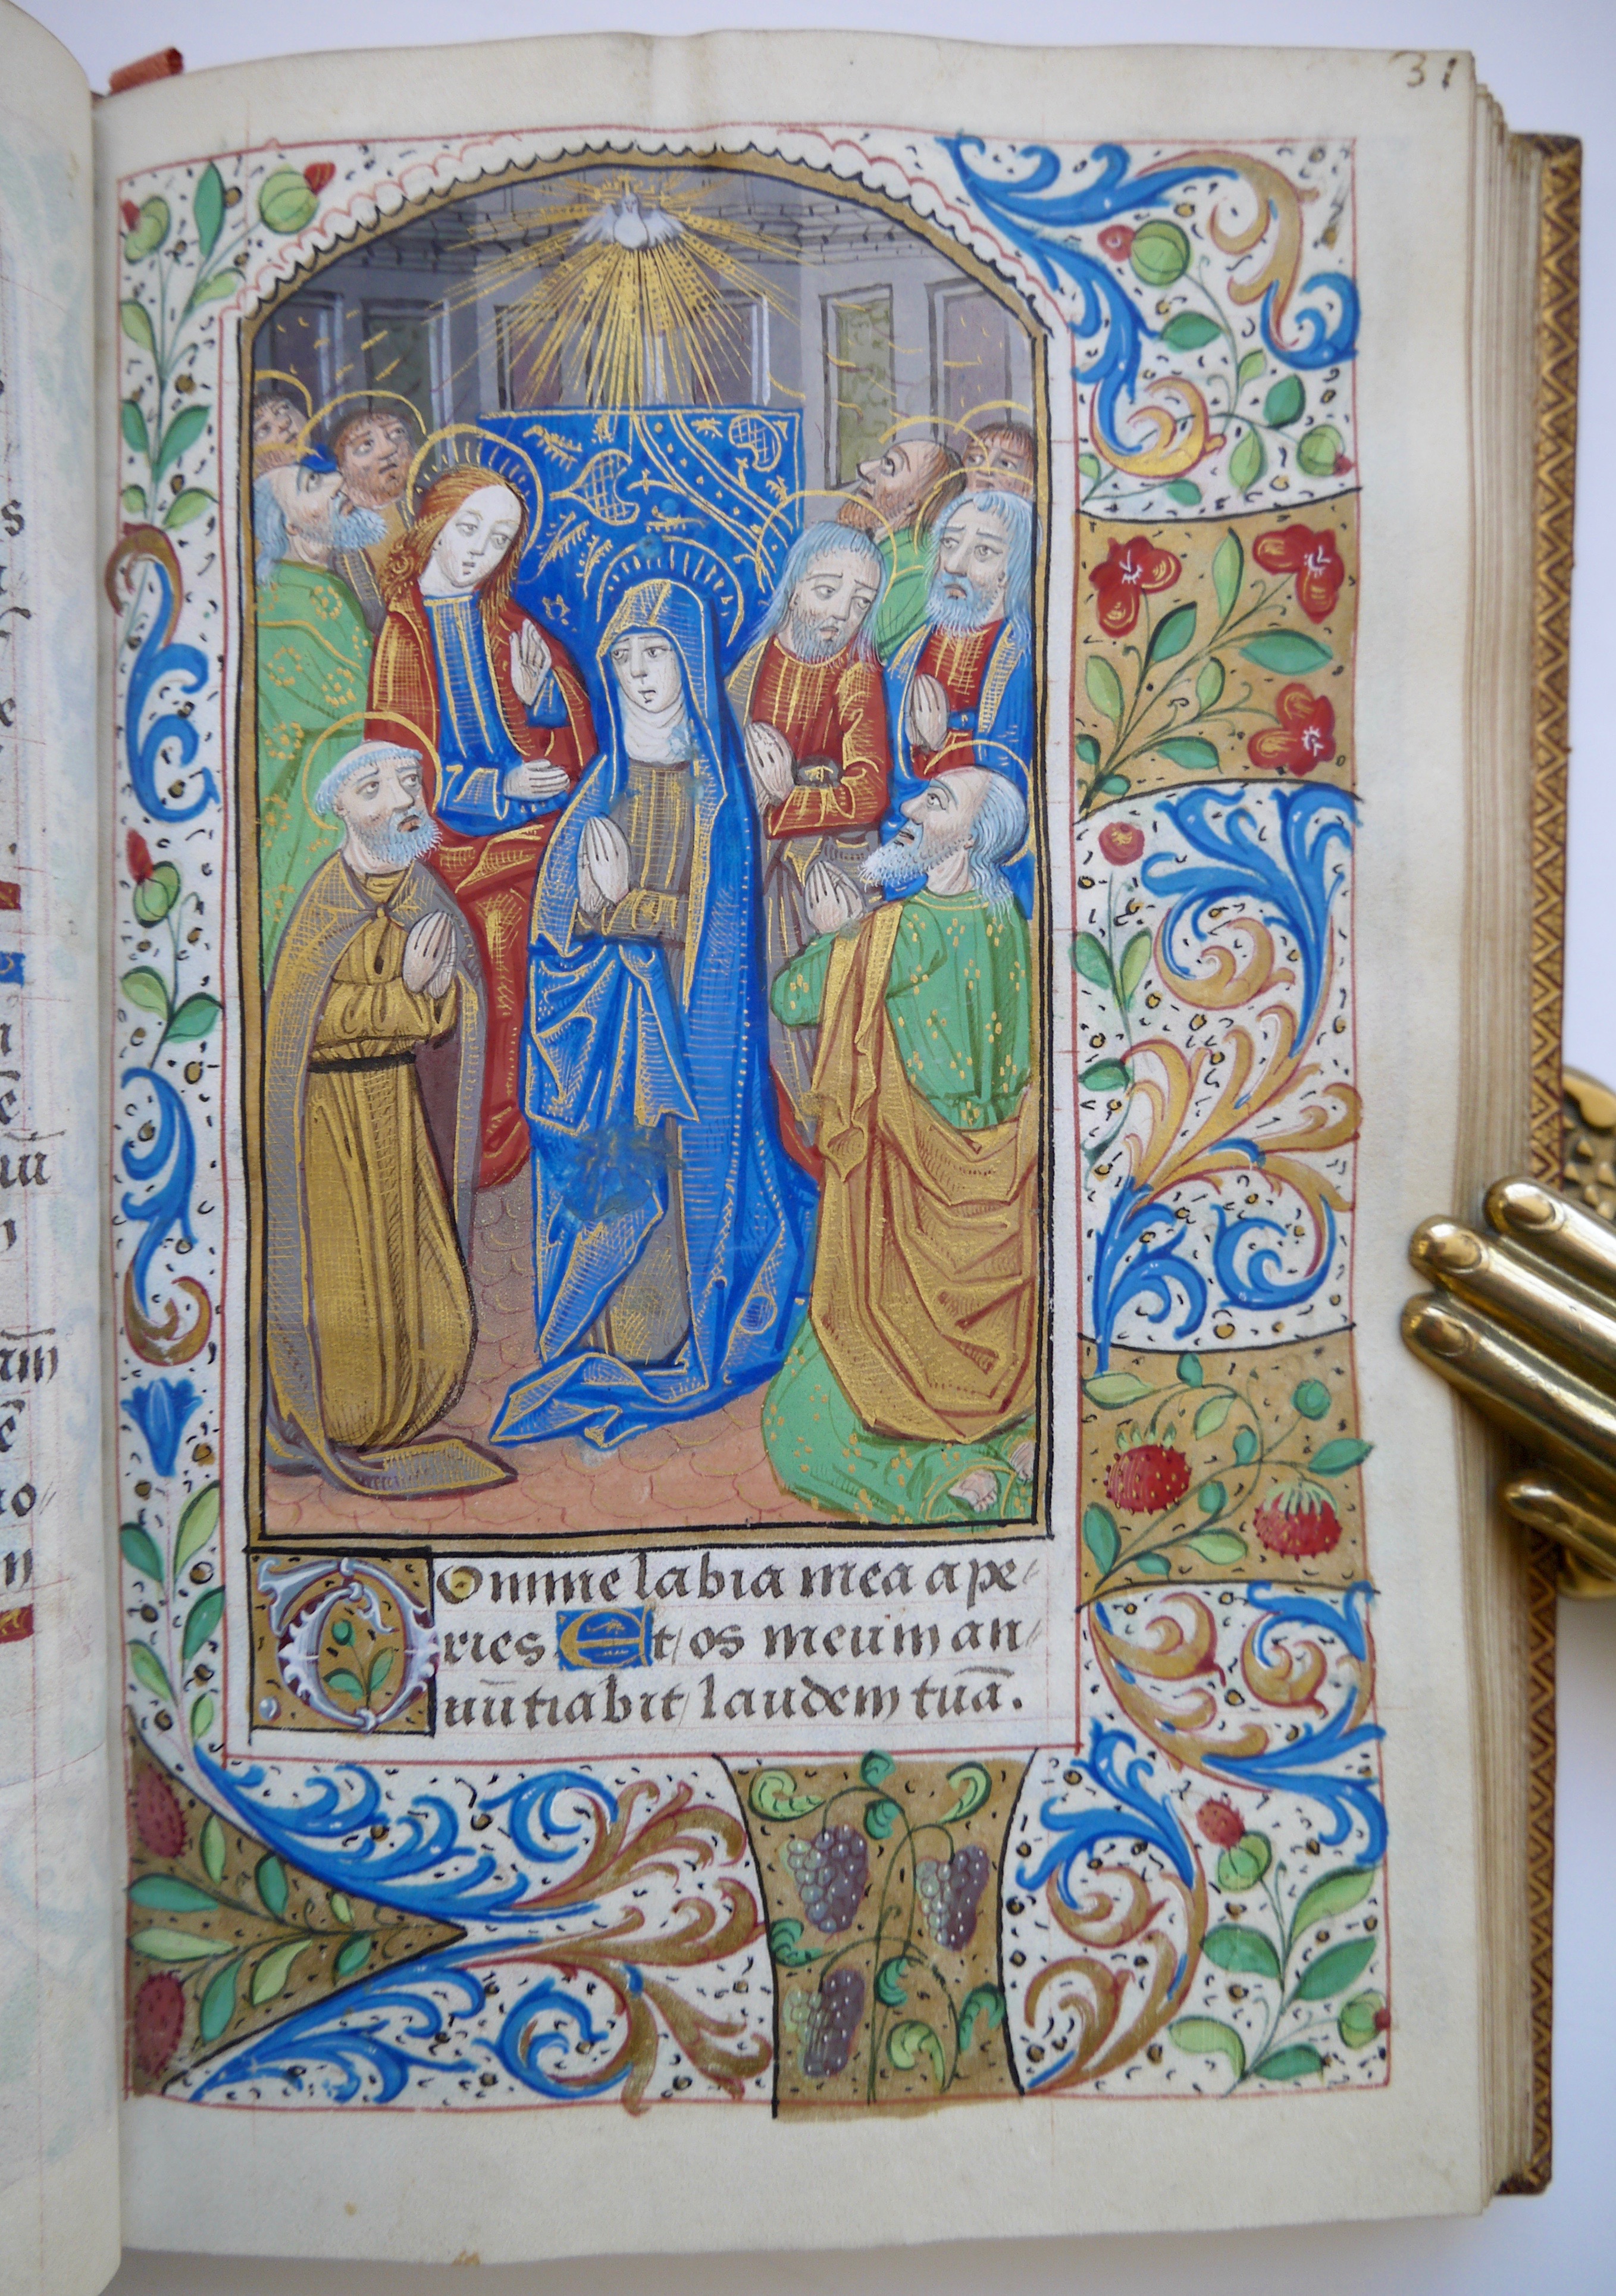 31
Domine labia mea ape-
ries Et os meum an-
nūtiabit laudem tuā.